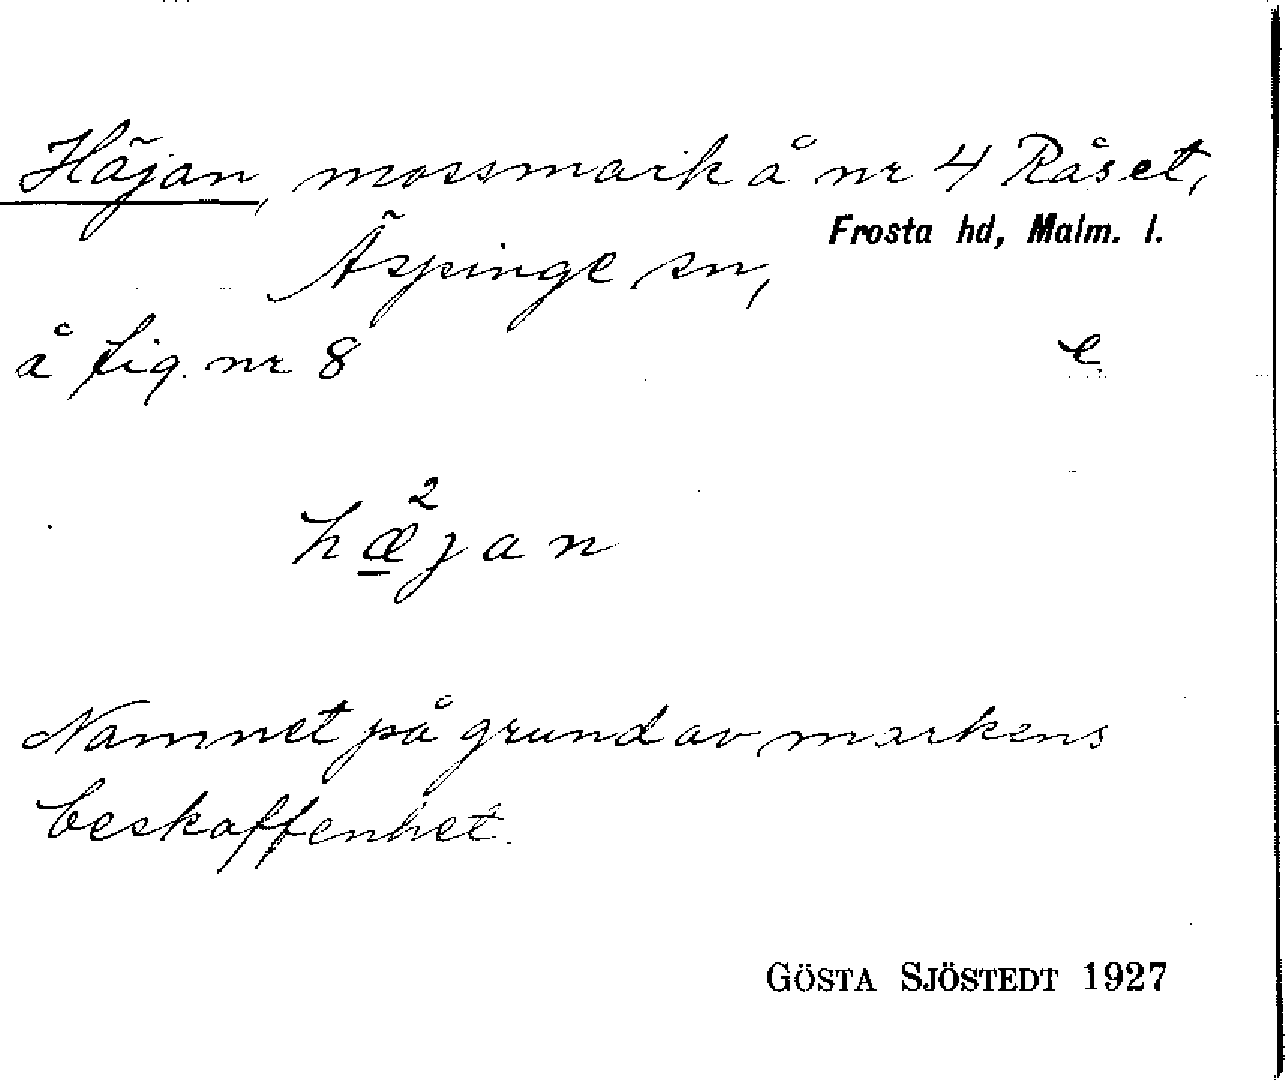 Häjan, mossmark å nr 4 Råset,
Frosta hd, Malm. l.
Äspinge sn,
å fig. nr 8 e
hæ²jan
Namnet på grund av markens
beskaffenhet.
GÖSTA SJÖSTEDT 1927